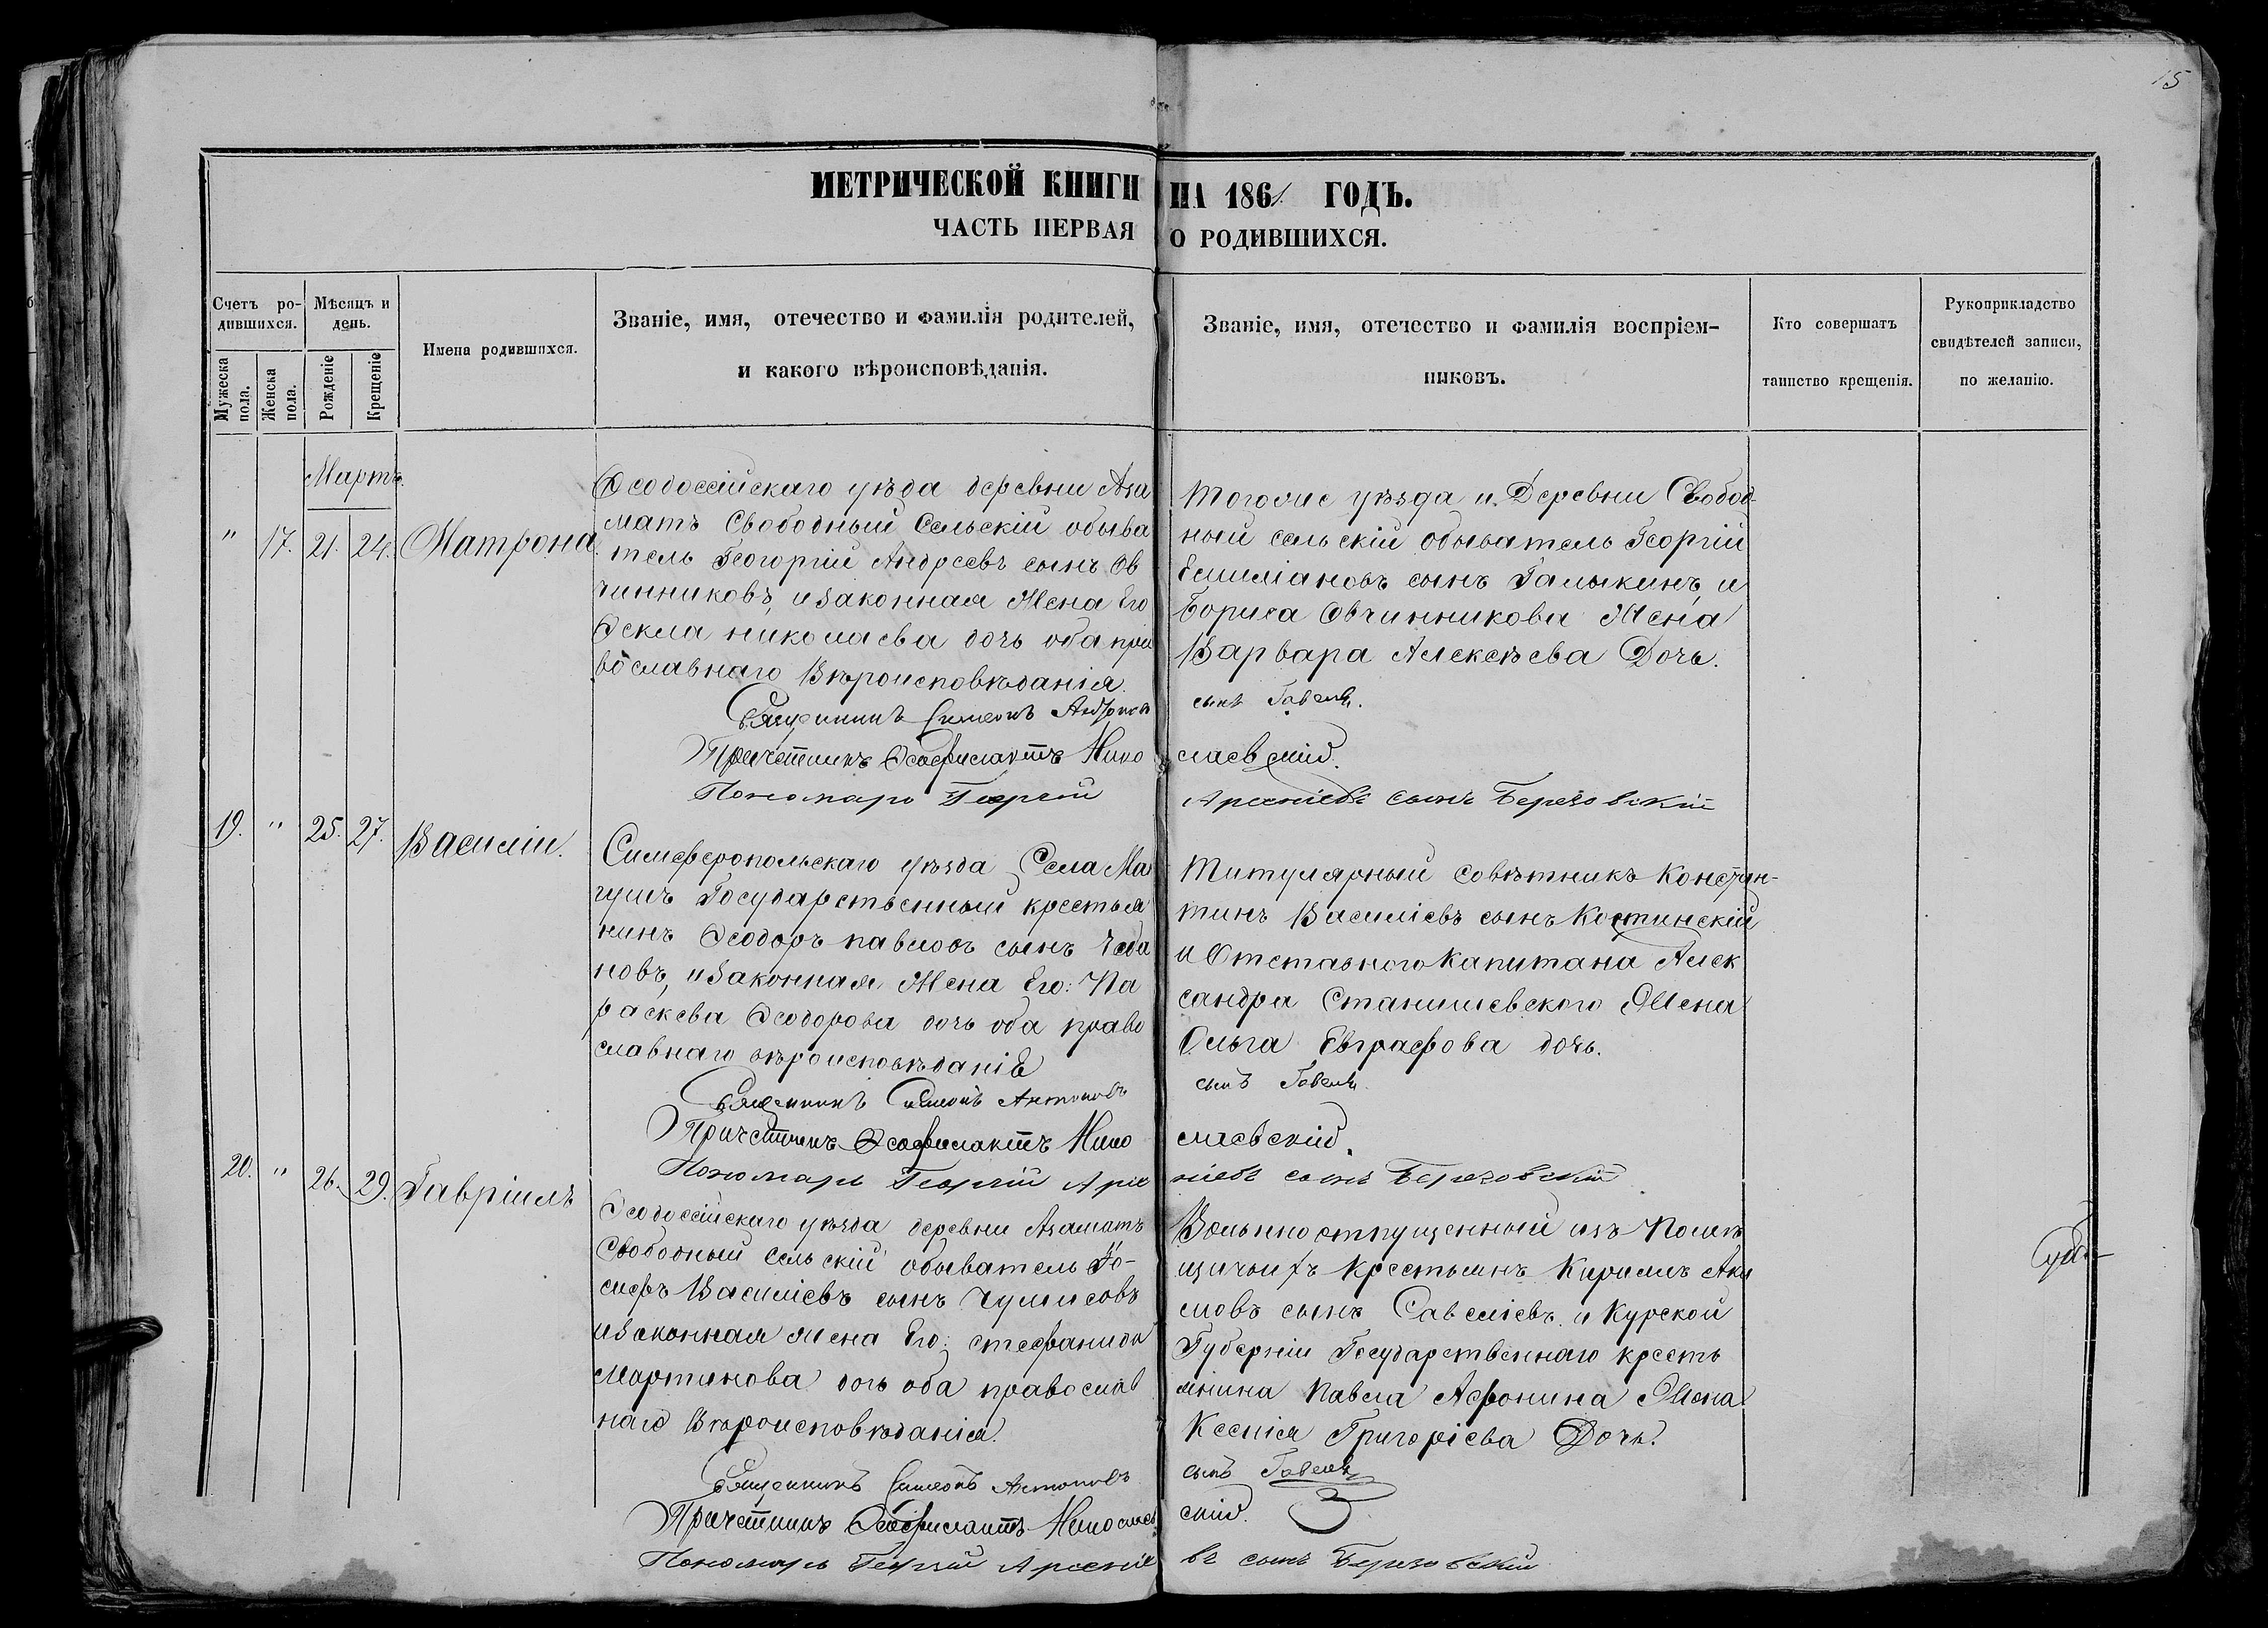 15
МЕТРИЧЕСКОЙ КНИГИ НА 1861 ГОДЪ.
ЧАСТЬ ПЕРВАЯ О РОДИВШИХСЯ.
Счетъ ро-
дившихся.
Мужеска пола.
Женска пола.
Мѣсяцъ и
день.
Рожденіе
Крещеніе
Имена родившихся.
Званіе, имя, отечество и фамилія родителей,
и какого вѣроисповѣданія.
Званіе, имя, отечество и фамилія воспріем-
никовъ.
Кто совершатъ
таинство крещенія.
Рукоприкладство
свидѣтелей записи,
по желанію.
Мартъ.
" 17. 21. 24. Матрона.
Ѳеодоссійскаго уѣзда деревни Аза
матъ Свободный Сельскій обыва
тель Геогоргій Андреевъ сынъ Ов
чинниковъ, и законная Жена Его
Ѳекла николаева дочь оба пра
вославнаго Вѣроисповѣданія.
Тогоже уѣзда и Деревни Свобод-
ный сельскій обыватель Георгій
Емиліановъ сынъ Галыкинъ, и
Бориса Овчинникова Жена
Варвара Алексѣева Дочь.
Священникъ Симеонъ Антоновъ сынъ Гавель.
Причетникъ Ѳеофилактъ Нико лаевскій.
Пономарь Георгій Арсеніевъ сынъ Березовскій
19. " 25. 27. Василій.
Симферопольскаго уѣзда Села Ма
гушъ Государственный крестья
нинъ Ѳеодоръ павловъ сынъ Чеба
новъ, и Законная Жена Его: Па
раскева Ѳеодорова дочь оба право
славнаго вѣроисповѣданіЯ
Титулярный совѣтникъ Констан-
тинъ Василіевъ сынъ Костинскій
и Отставного Капитана Алек
сандра Станишевского Жена
Ольга Евграфова дочь.
Священникъ Симеонъ Антоновъ сынъ Гавель.
Причетникъ Ѳеофилактъ Нико лаевскій.
Пономарь Георгій Арсе ніевъ сынъ Березовскій
20. " 26. 29. Гавріилъ
Ѳеодоссійскаго уѣзда деревни Азаматъ
Свободный сельскій обыватель Іо-
сифъ Василіевъ сынъ
и Законная жена Его: стефанида
Мартинова дочь оба православ
наго Вѣроисповѣданія.
Вольноотпущенный изъ Помѣ
щичьихъ Крестьянъ Кирилъ Аки
мовъ сынъ Савеліевъ. и Курской
Губерніи Государственнаго кресть
янина Павла Афонина Жена
Ксенія Григоріева Дочь.
Священникъ Симеонъ Антоновъ сынъ Гавель
Причетникъ Ѳеофилактъ Николаев скій.
Пономарь Георгій Арсеніе въ сынъ Березовскій